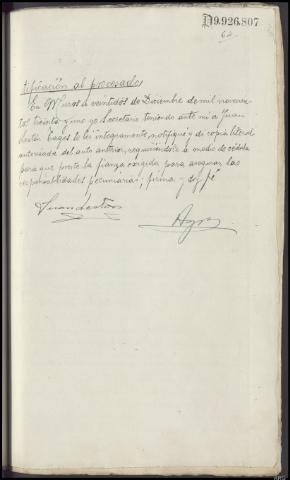 D9.926.807
62
tificación al procesado
En Muros a veintidós de Diciembre de mil novecien-
tos treinta y uno yo Secretario teniendo ante mi a Juan
Lestón le leí integramente, notifiqué y dí copia literal
autorizada del auto anterior, requiriéndole a medio de cédula
para que preste la fianza exigida para asegurar las
responsabilidades pecuniarias; firma y doy fé
Juan Lestón